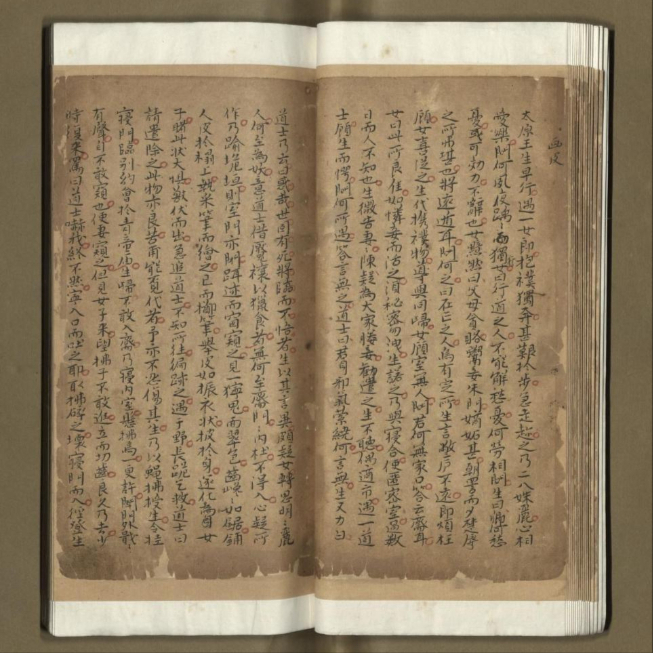 画皮
太原王生早行遇一女郎抱襆獨奔甚艱於步急走趁之乃二八姝麗心相
愛樂問何夙夜踽〻獨行女曰行道之人不能解愁憂何勞相問生曰卿何愁
憂或可効力不辭也女黯然曰父母貪賂鬻妾朱門嫡妬甚朝詈而夕楚辱
之所弗堪也將遠遁耳問何之曰在亡之人烏有定所生言敝廬不遠即煩枉
顧女喜從之生代携襆物導與同歸女顧室無人問君何無家口答云齋耳
女曰此所良佳如憐妾而活之須秘密勿洩生諾之乃與寢合使匿密室過數
日而人不知也生微告妻〻陳疑為大家媵妾勸遣之生不聽偶適市遇一道
士顧生而愕問何所遇答言無之道士曰君身邪氣縈繞何言無生又力白
道士乃去曰惑哉世固有死將臨而不悟者生以其言異頗疑女轉思明〻麗
人何至為妖意道士借魘禳以獵食者無何至齋門〻內杜不得入心疑所
作乃踰垝垣則室門亦閉躡迹而窗窺之見一獰鬼面翠色齒巉〻如鋸鋪
人皮於榻上執采筆而繪之已而擲筆舉皮如振衣狀披於身遂化為女
子睹此狀大懼獸伏而出急追道士不知所往徧跡之遇于野長跪乞救道士曰
請遣除之此物亦良苦甫能覓代者予亦不忍傷其生乃以蠅拂授生令挂
寢門臨別約會於青帝廟生歸不敢入齋乃寢內室懸拂焉一更許聞門外戢〻
有聲自不敢窺也使妻窺之但見女子來望拂子不敢進立而切齒良久乃去少
時復來罵曰道士嚇我終不然寧入口而吐之耶取拂碎之壞寢門而入徑登生